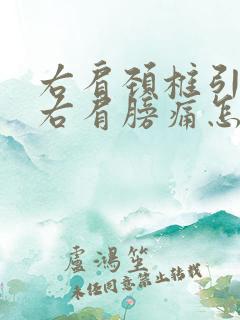 右肩颈柱引
右肩膀痛怎
盧鴻笙
未经同意禁止转载